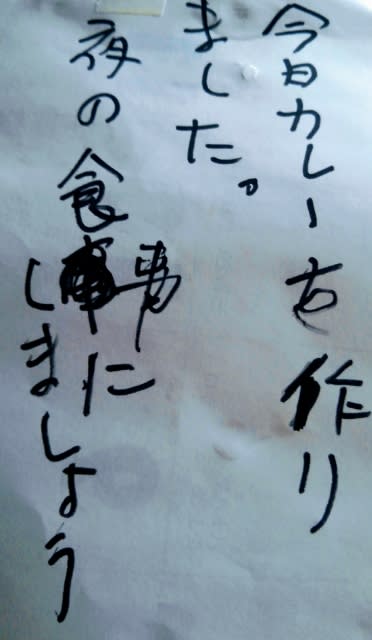 今日カレーを作り
ました。
夜の食事に
しましょう